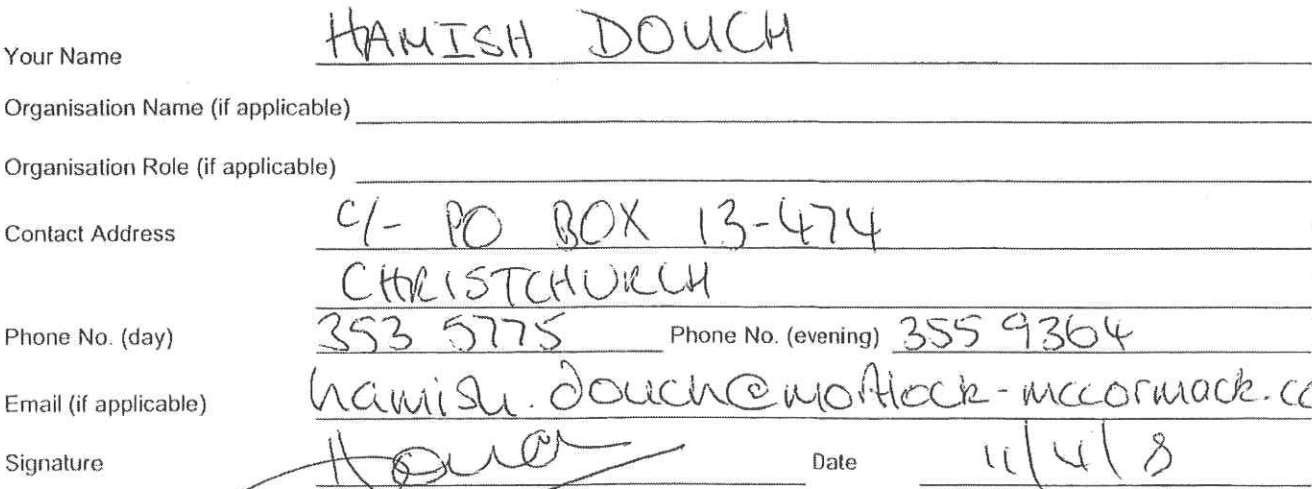 Your Name HAMISH DOUCH
Organisation Name (if applicable)
Organisation Role (if applicable)
Contact Address C/- PO BOX 13-474
CHRISTCHURCH
Phone No. (day) 353 5775 Phone No. (evening) 355 9364
Email (if applicable) hamish.douch@mortlock-mccormack.co
Signature Date 11/4/8